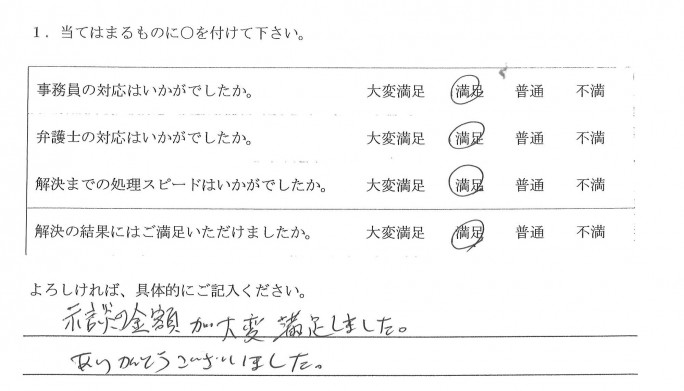 1．当てはまるものに〇を付けて下さい。
事務員の対応はいかがでしたか。 大変満足 満足 普通 不満
弁護士の対応はいかがでしたか。 大変満足 満足 普通 不満
解決までの処理スピードはいかがでしたか。 大変満足 満足 普通 不満
解決の結果にはご満足いただけましたか。 大変満足 満足 普通 不満
よろしければ、具体的にご記入ください。
示談の金額が大変満足しました。
ありがとうございました。